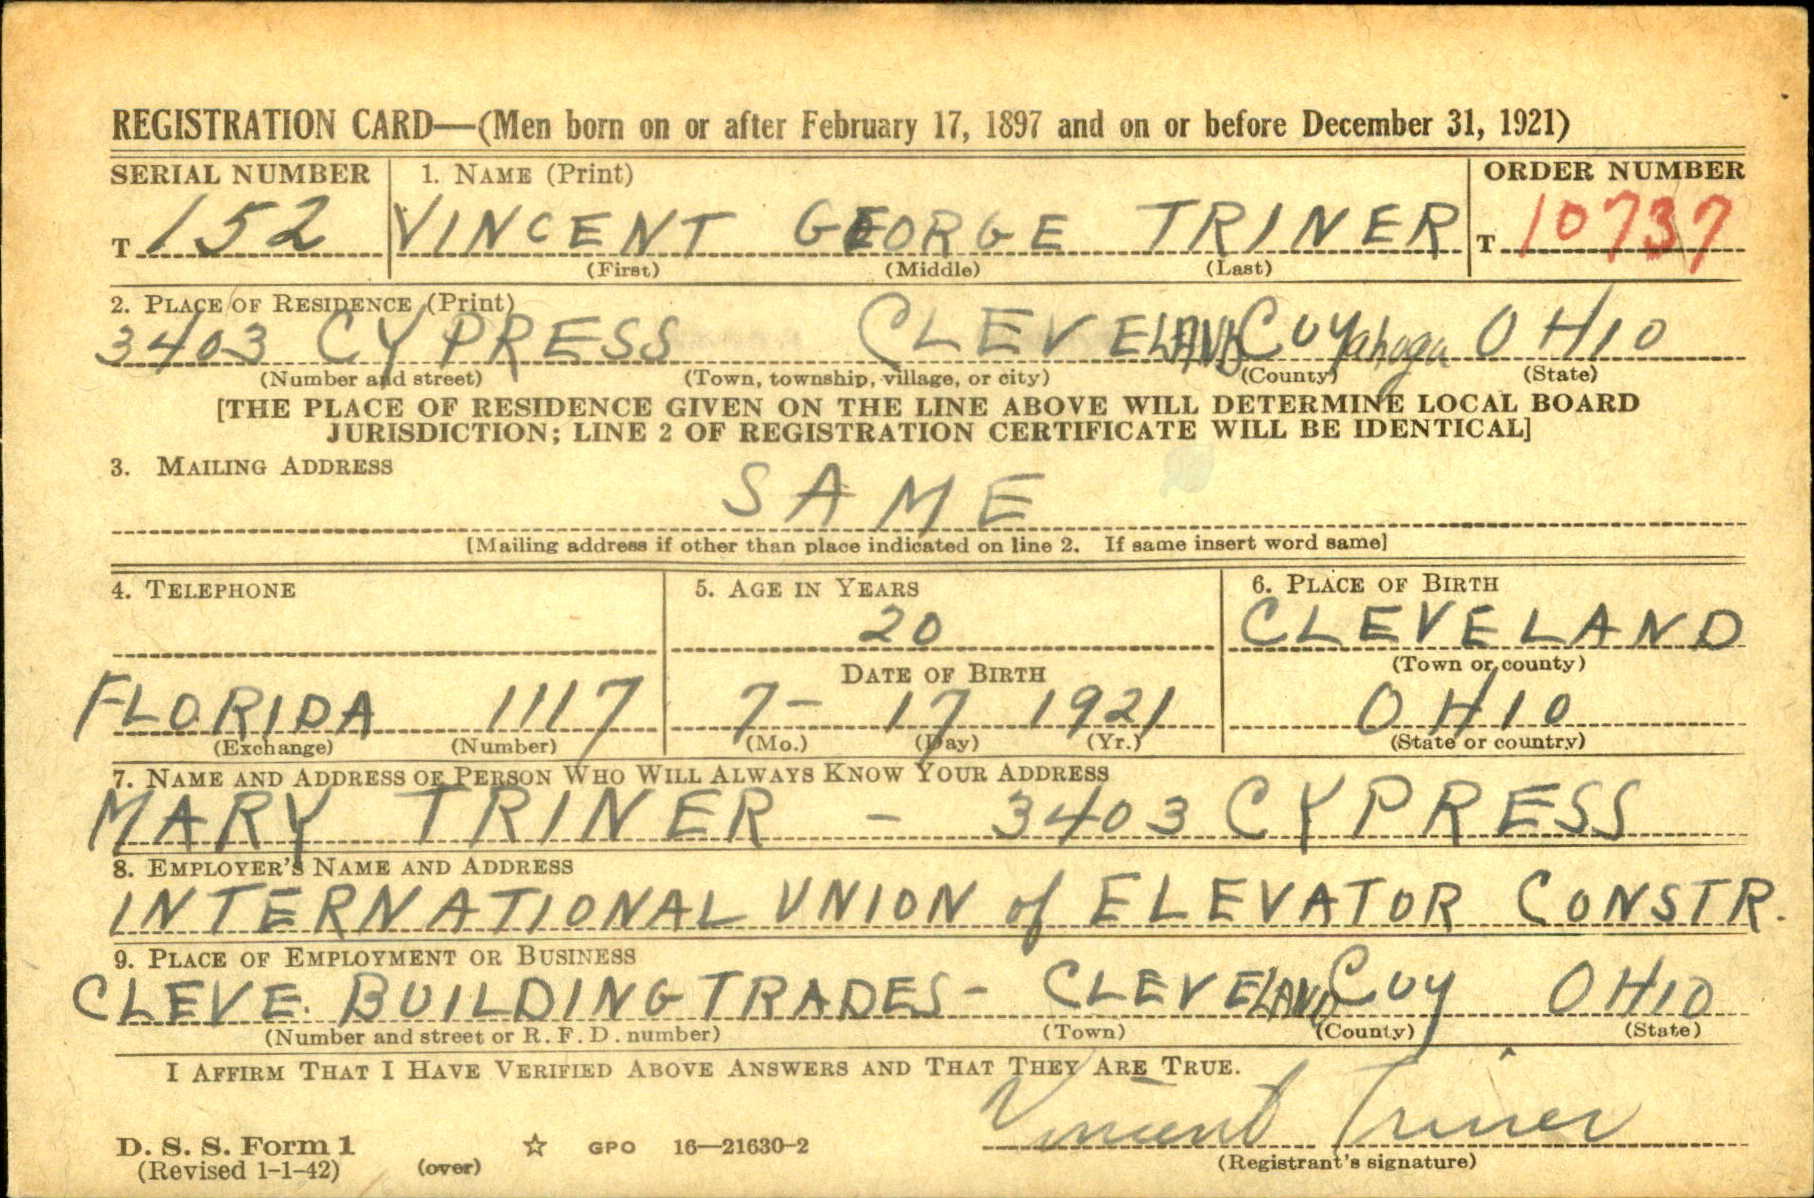 REGISTRATION CARD—(Men born on or after February 17, 1897 and on or before December 31, 1921)
SERIAL NUMBER 1. NAME (Print) ORDER NUMBER
T 152 VINCENT GEORGE TRINER T 10737
(First) (Middle) (Last)
2. PLACE OF RESIDENCE (Print)
3403 CYPRESS CLEVELAND Cuyahoga OHIO
(Number and street) (Town, township, village, or city) (County) (State)
[THE PLACE OF RESIDENCE GIVEN ON THE LINE ABOVE WILL DETERMINE LOCAL BOARD
JURISDICTION; LINE 2 OF REGISTRATION CERTIFICATE WILL BE IDENTICAL]
3. MAILING ADDRESS
SAME
[Mailing address if other than place indicated on line 2. If same insert word same]
4. TELEPHONE 5. AGE IN YEARS 6. PLACE OF BIRTH
20 CLEVELAND
DATE OF BIRTH (Town or county)
FLORIDA 1117 7- 17 1921 OHIO
(Exchange) (Number) (Mo.) (Day) (Yr.) (State or country)
7. NAME AND ADDRESS OF PERSON WHO WILL ALWAYS KNOW YOUR ADDRESS
MARY TRINER - 3403 CYPRESS
8. EMPLOYER'S NAME AND ADDRESS
INTERNATIONAL UNION of ELEVATOR CONSTR.
9. PLACE OF EMPLOYMENT OR BUSINESS
CLEVE. BUILDING TRADES - CLEVELAND CUY OHIO
(Number and street or R. F. D. number) (Town) (County) (State)
I AFFIRM THAT I HAVE VERIFIED ABOVE ANSWERS AND THAT THEY ARE TRUE.
Vincent Triner
D. S. S. Form 1 ☆ GPO 16—21630-2
(Revised 1-1-42) (over) (Registrant's signature)